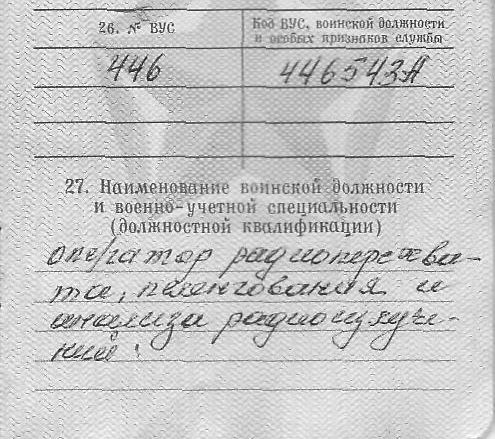 26. № ВУС
Код ВУС, воинской должности
и особых признаков службы
446
446543А
27. Наименование воинской должности
и военно-учетной специальности
(должностной квалификации)
оператор радиоперехва-
та, пеленгования и
анализа радиоизлуче-
ний.